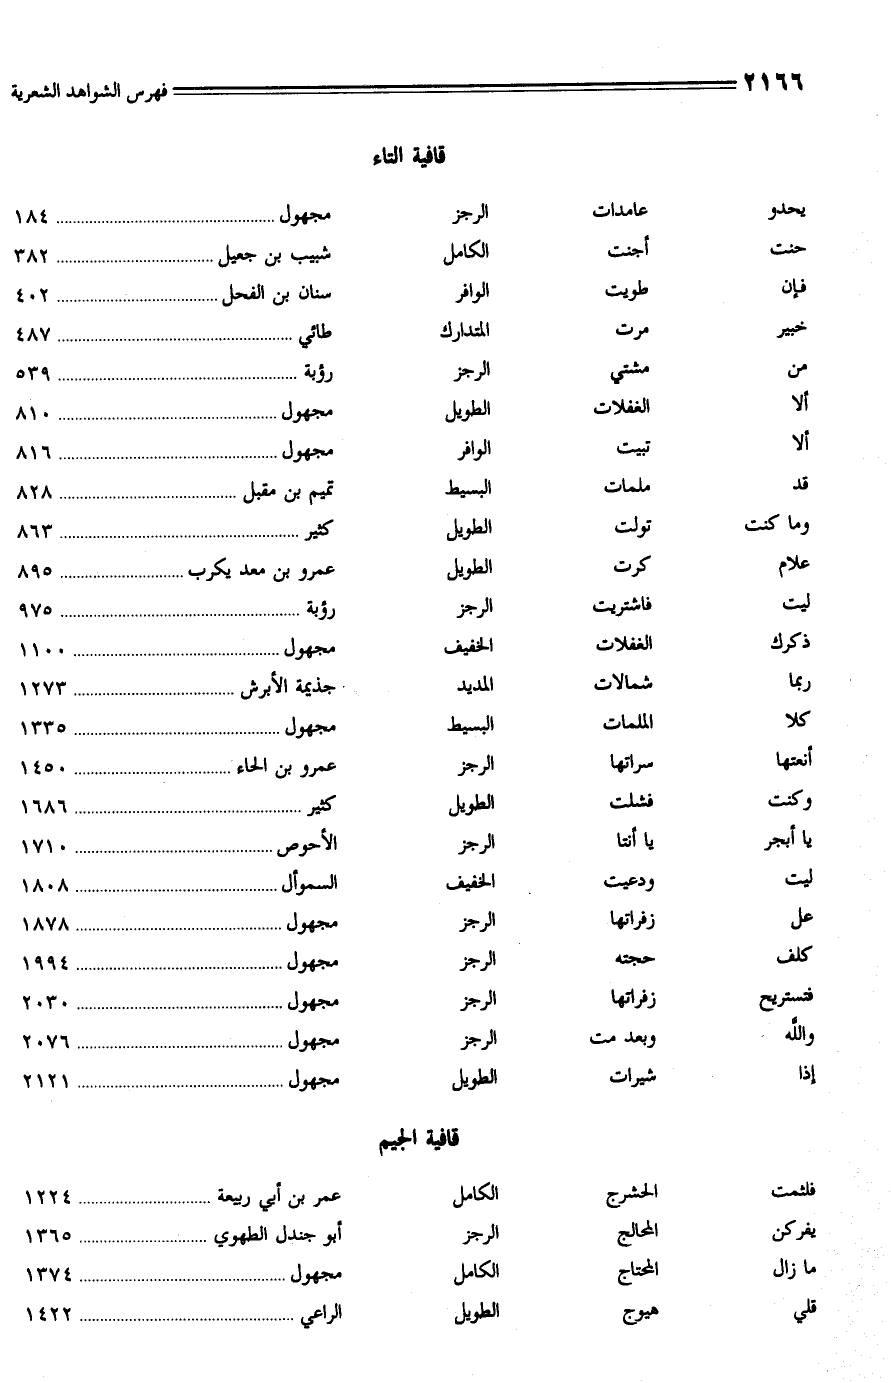 ٢١٦٦ فهرس الشواهد الشعرية
قافية التاء
يحدو عامدات الرجز مجهول ١٨٤
حنت أجنت الكامل شبيب بن جعيل ٣٨٢
فإن طويت الوافر سنان بن الفحل ٤٠٢
خبير مرت المتدارك طائي ٤٨٧
من مشتي الرجز رؤبة ٥٣٩
ألا الغفلات الطويل مجهول ٨١٠
ألا تبيت الوافر مجهول ٨١٦
قد ملمات البسيط تميم بن مقبل ٨٢٨
وما كنت تولت الطويل كثير ٨٦٣
علام كرت الطويل عمرو بن معد يكرب ٨٩٥
ليت فاشتريت الرجز رؤبة ٩٧٥
ذكرك الغفلات الخفيف مجهول ١١٠٠
ربما شمالات المديد جذيمة الأبرش ١٢٧٣
كلا الملمات البسيط مجهول ١٣٣٥
أنعتها سراتها الرجز عمرو بن الحاء ١٤٥٠
وكنت فشلت الطويل كثير ١٦٨٦
يا أبجر يا أنتا الرجز الأحوص ١٧١٠
ليت ودعيت الخفيف السموأل ١٨٠٨
عل زفراتها الرجز مجهول ١٨٧٨
كلف حجته الرجز مجهول ١٩٩٤
فتستريح زفراتها الرجز مجهول ٢٠٣٠
واللَّه وبعد مت الرجز مجهول ٢٠٧٦
إذا شيرات الطويل مجهول ٢١٢١
قافية الجيم
فلثمت الحشرج الكامل عمر بن أبي ربيعة ١٢٢٤
يفركن المحالج الرجز أبو جندل الطهوي ١٣٦٥
ما زال المحتاج الكامل مجهول ١٣٧٤
قلي هيوج الطويل الراعي ١٤٢٢